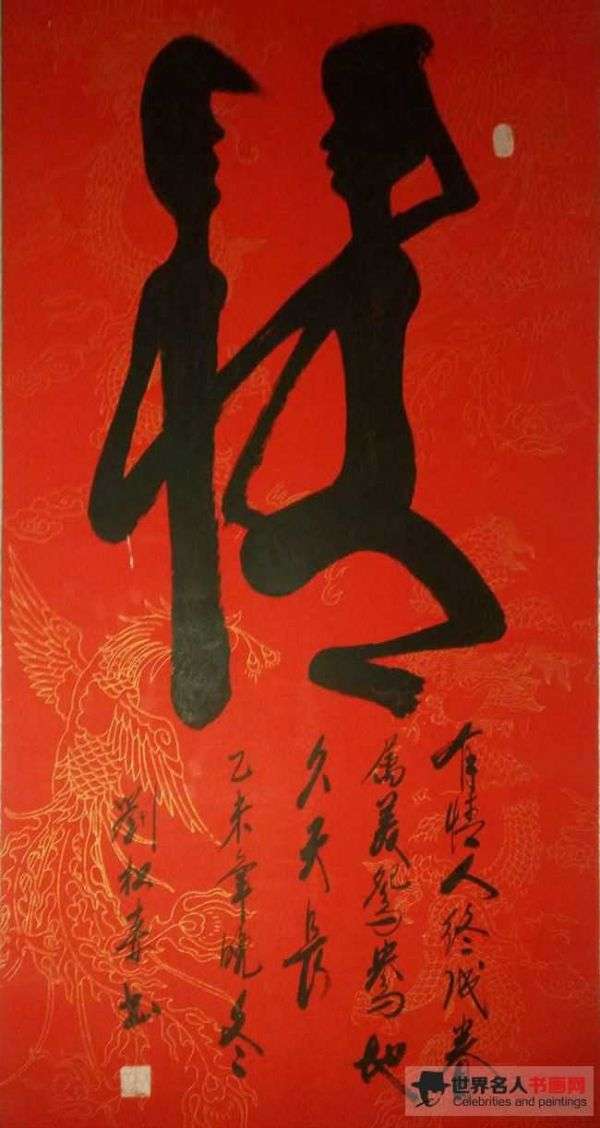 有情人终成眷
属羡鸳鸯地
久天長
乙未年晚冬
劉 书
世界名人书画网
Celebrities and paintings